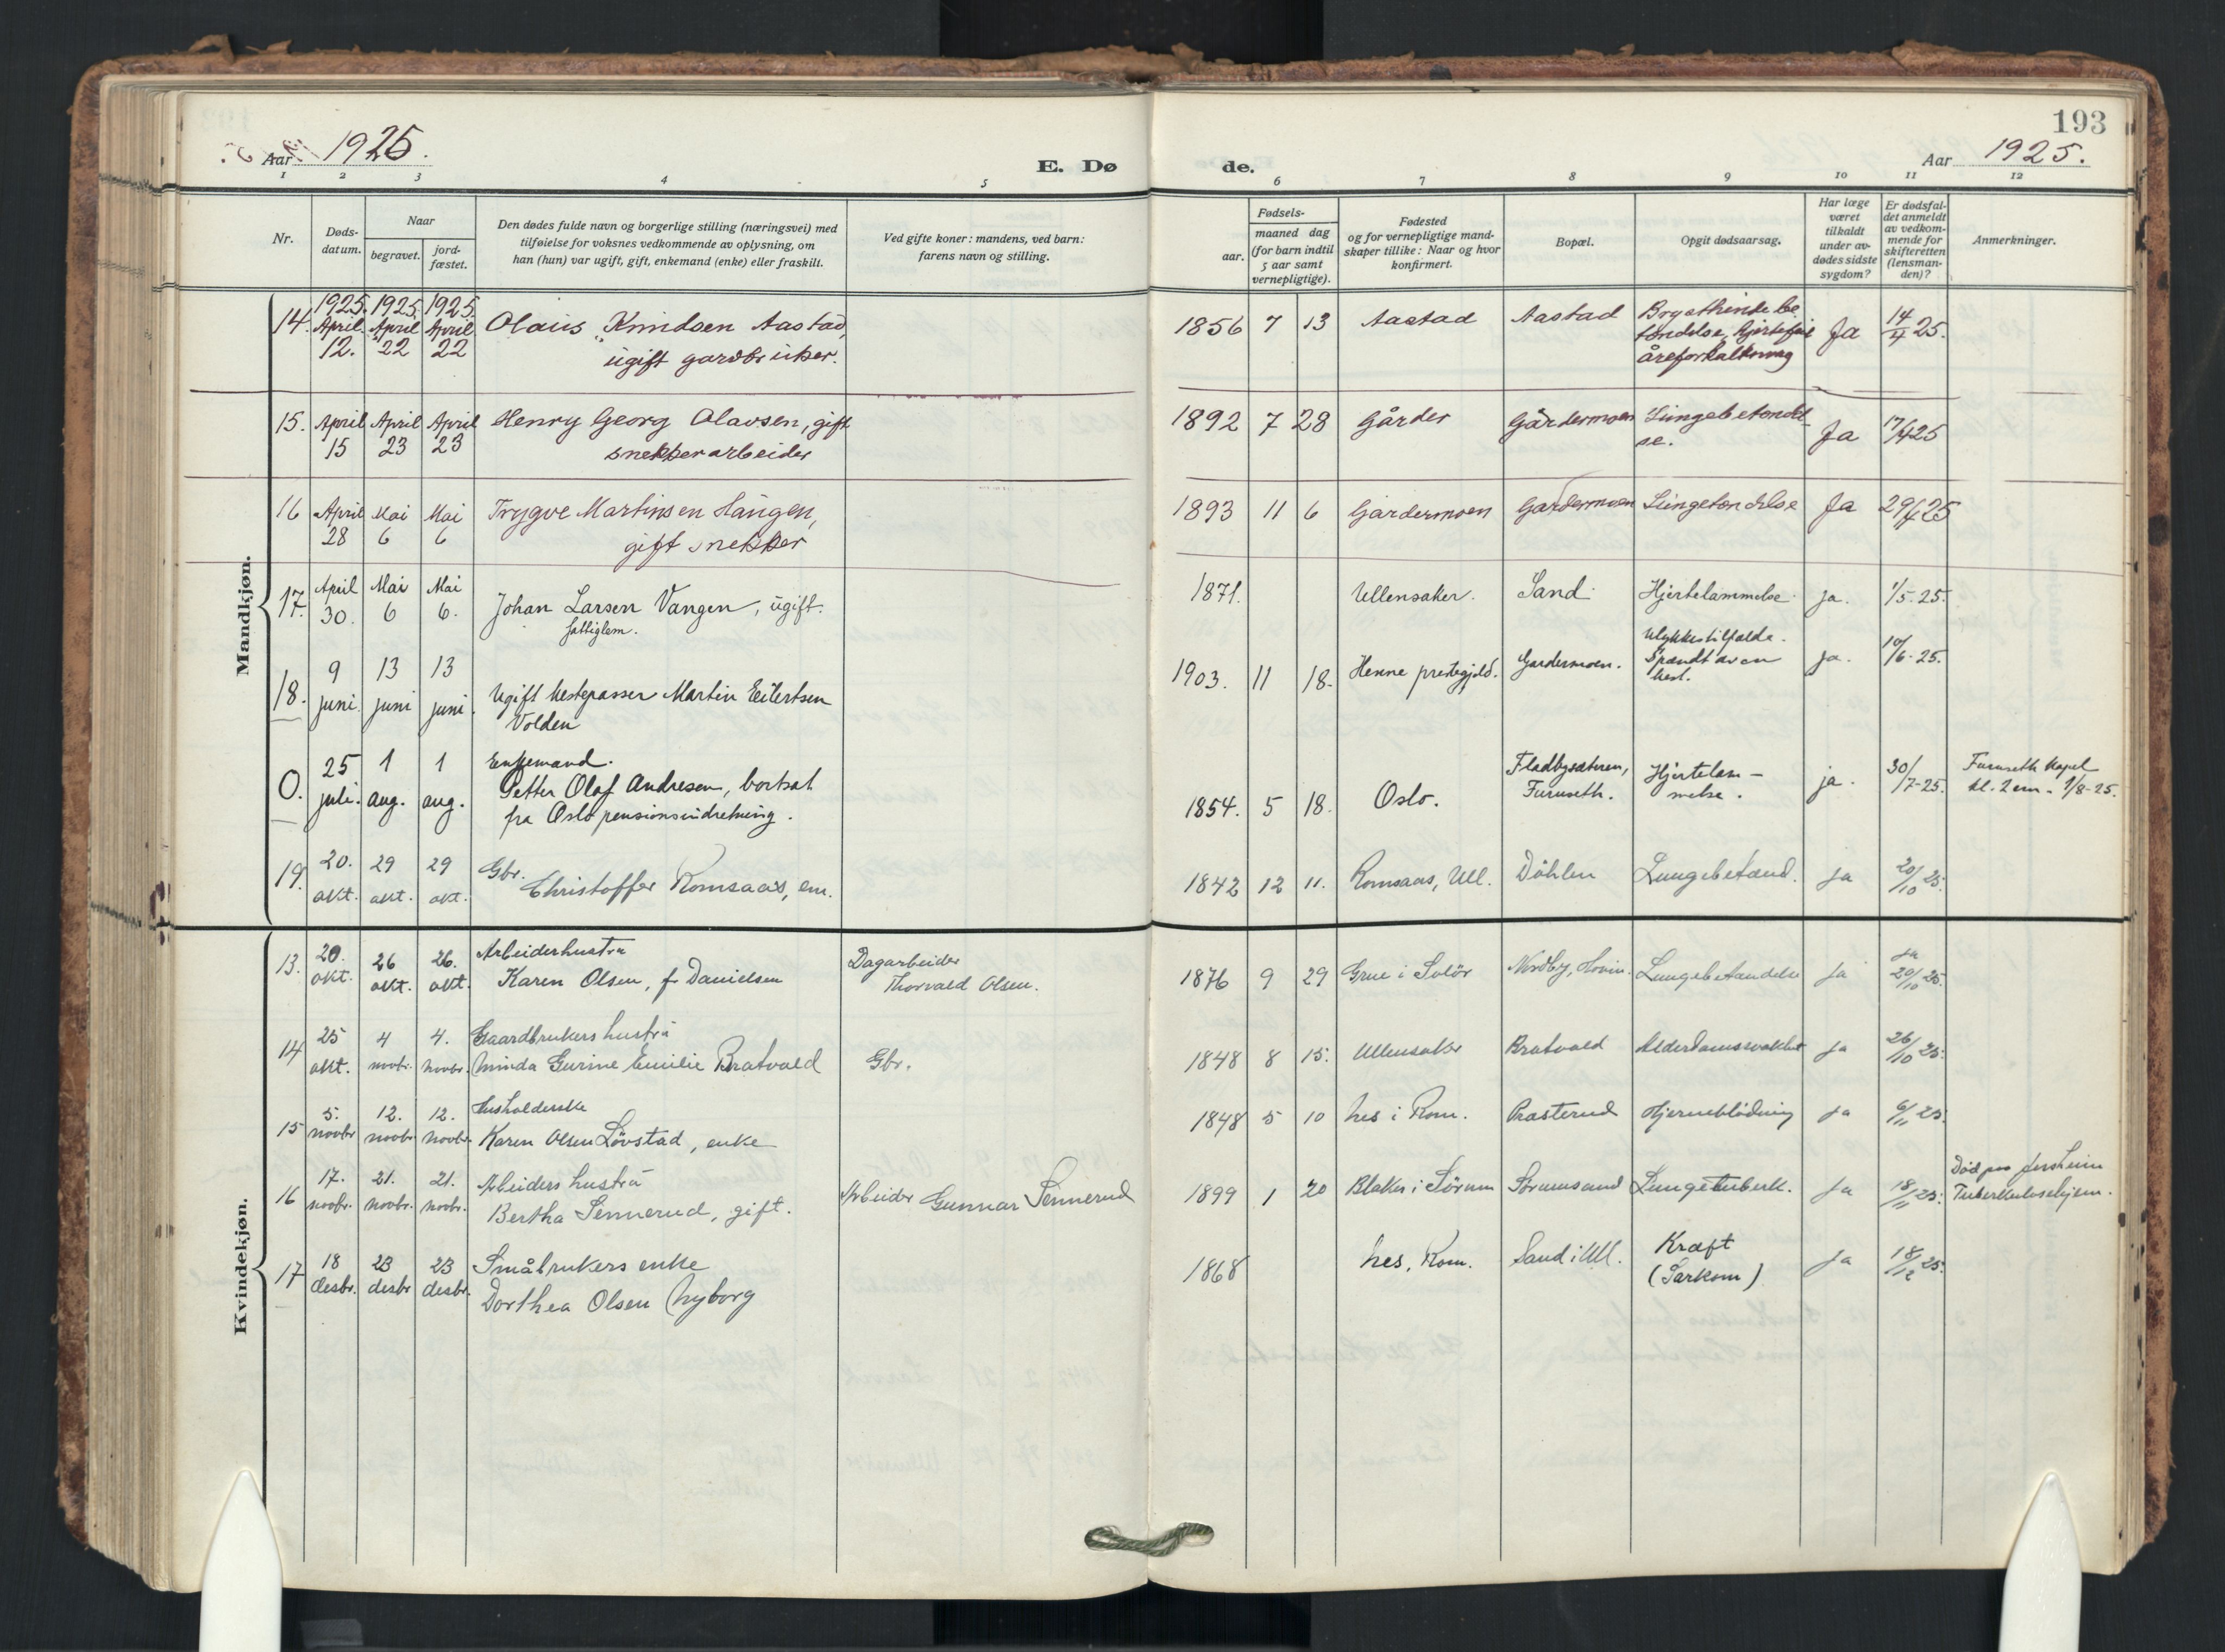 193
Aar 1925.
E. Dø
de.
Aar 1925.
1 2 3 4 5 6 7 8 9 10 11 12
Nr.
Døds-
datum.
Naar
begravet.
jord-
fæstet.
Den dødes fulde navn og borgerlige stilling (næringsvei) med
tilføielse for voksnes vedkommende av oplysning, om
han (hun) var ugift, gift, enkemand (enke) eller fraskilt.
Ved gifte koner: mandens, ved barn:
farens navn og stilling.
Fødsels-
aar.
maaned dag
(for barn indtil
5 aar samt
vernepligtige).
Fødested
og for vernepligtige mand-
skaper tillike: Naar og hvor
konfirmert.
Bopæl.
Opgit dødsaarsag.
Har læge
været
tilkaldt
under av-
dødes sidste
sygdom?
Er dødsfal-
det anmeldt
av vedkom-
mende for
skifteretten
(lensman-
den)?
Anmerkninger.
Mandkjøn.
14. 1925. April 12. 1925. April 22 1925. April 22 Olaus Knudsen Aastad,
ugift gardbruker.
1856 7 13 Aastad Aastad Brysthindebe
tendelse, Hjertefeil
åreforkalkning
Ja 14/4 25.
15. April 15 April 23 April 23 Henry Georg Olavsen, gift
snekkerarbeider
1892 7 28 Gårder Gårdermoen Lungebetendel
se.
Ja 17/4 25
16 April 28 Mai 6 Mai 6 Trygve Martinsen Haugen,
gift snekker
1893 11 6 Gardermoen Gardermoen Lungetendelse Ja 29/4 25
17. April 30. Mai 6 Mai 6. Johan Larsen Vangen, ugift.
fattiglem.
1871. Ullensaker. Sand. Hjertelammelse. ja. 1/5-25.
18. 9 juni. 13 juni 13 juni. Ugift hestepasser Martin Eilertsen
Volden
1903. 11 18. Henne prestegjeld. Gardermoen. Ulykkestilfælde.
Spændt av en
hest.
ja. 10/6-25.
0. 25 juli. 1 aug. 1 aug. Enkemand.
Petter Olaf Andresen, bortsat
fra Oslo pensionsindretning.
1854. 5 18. Oslo. Fladbysæteren,
Furuseth.
Hjertelam-
melse.
ja. 30/7-25. Furuseth Kapel
kl. 2 em. 1/8-25.
19. 20. okt. 29 okt. 29 okt. Gbr.
Christoffer Romsaas, em.
1842 12 11. Romsaas, Ull. Døhlen Lungebetænd. ja 20/10 25.
Kvindekjøn.
13. 20. okt. 26 okt. 26. okt. Arbeiderhustru
Karen Olsen, f. Danielsen
Dagarbeider
Thorvald Olsen.
1876 9 29 Grue i Solör Nordby, Hovin. Lungebetændelse ja ja 20/10 25.
14 25 okt. 4 novbr. 4. novbr. Gaardbrukers hustru
Minda Gurine Emilie Bratvold
Gbr.
1848 8 15. Ullensaker Bratvold Alderdomssvakhet ja 26/10 25.
15 5. novbr 12. novbr. 12. novbr. Husholderske
Karen Olsen Lövstad, enke
1848 5 10 Nes i Rom. Prasterud Hjerneblödning ja 6/11 25.
16 17. novbr. 21. novbr. 21. novbr. Arbeiders hustru
Bertha Sennerud, gift.
Arbeider Gunnar Sennerud
1899 1 20 Blaker i Sörum Sörumsand Lungetuberk. ja 18/11 25. Död paa Jessheim
Tuberkulosehjem.
17 18 desbr. 23 desbr 23 desbr. Småbrukers enke
Dorthea Olsen Nyborg
1868 Nes, Rom. Sand i Ull. Kræft
(Sarkom)
ja 18/12 25.